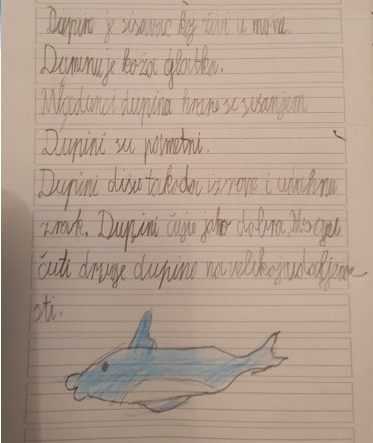 Dupin je sisavac koj živi u moru.
Dupinu je koža glatka.
Mladunci dupina hrane se sisanjem
Dupini su pametni.
Dupini dišu tako da izrone i udahnu
zrak. Dupini čuju jako dobro.
čuti druge dupine na velikoj udaljeno-
sti.